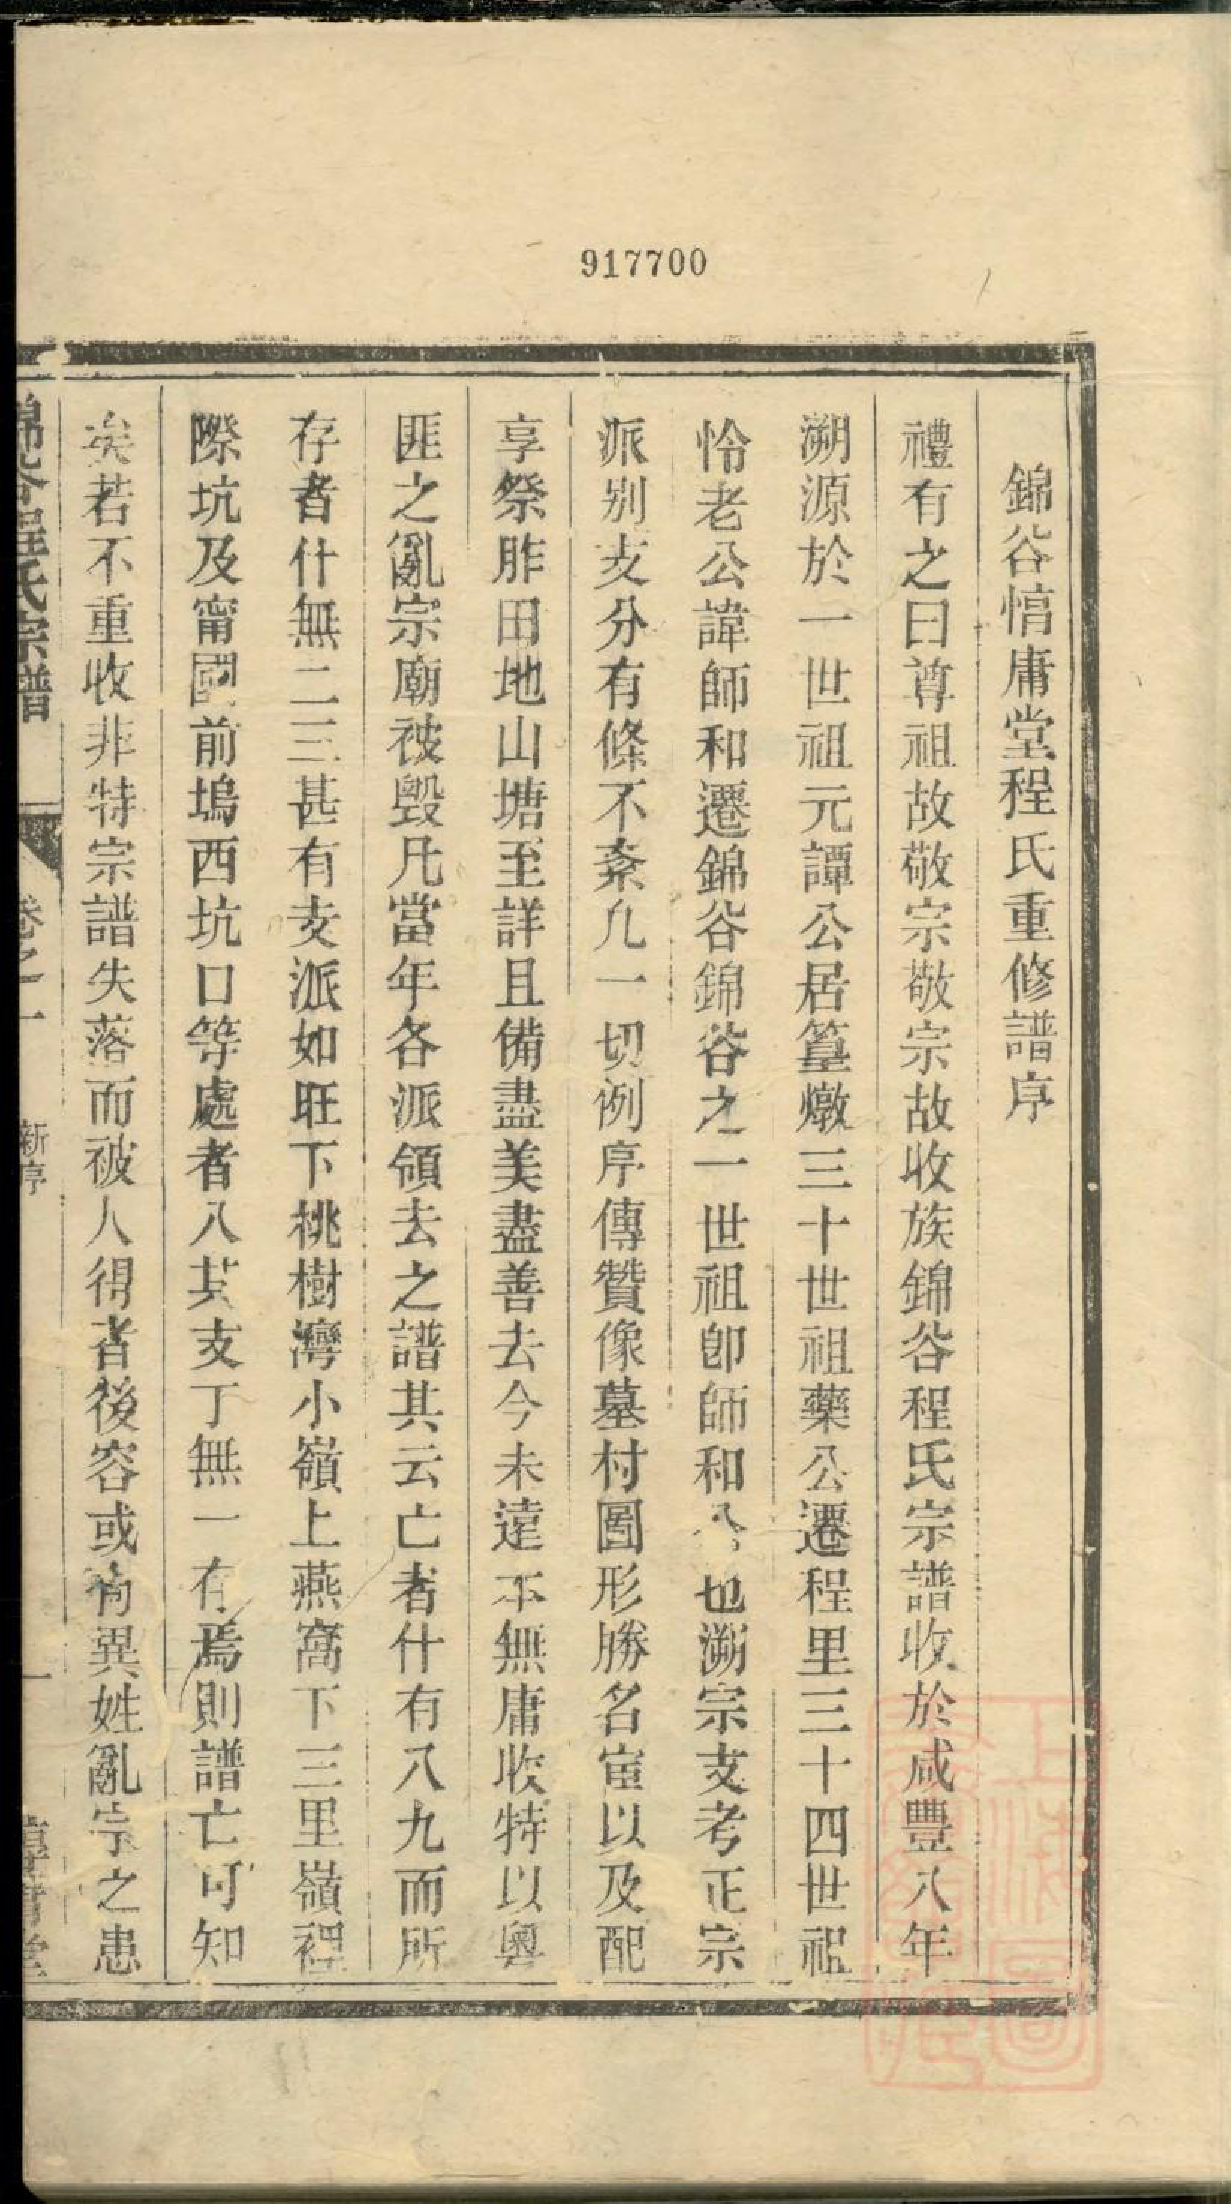 917700
錦谷惇庸堂程氏重修譜序
禮有之曰尊祖故敬宗敬宗故收族錦谷程氏宗譜收於咸豐八年
溯源於一世祖元譚公居篁墩三十世祖藥公遷程里三十四世祖
怜老公諱師和遷錦谷錦谷之一世祖卽師和公也溯宗支考正宗
派别支分有條不紊凡一切例序傳贊像墓村圖形勝名宦以及配
享祭胙田地山塘至詳且備盡美盡善去今未遠不無庸收特以粵
匪之亂宗廟被毁凡當年各派領去之譜其云亡者什有八九而所
存者什無二三甚有支派如旺下桃樹灣小嶺上燕窩下三里嶺裡
際坑及甯國前塢西坑口等處者入其支丁無一有焉則譜亡可知
矣若不重收非特宗譜失落而被人得者後容或有異姓亂宗之患
錦谷程氏宗譜
卷之一
新序
一
上海圖書館藏